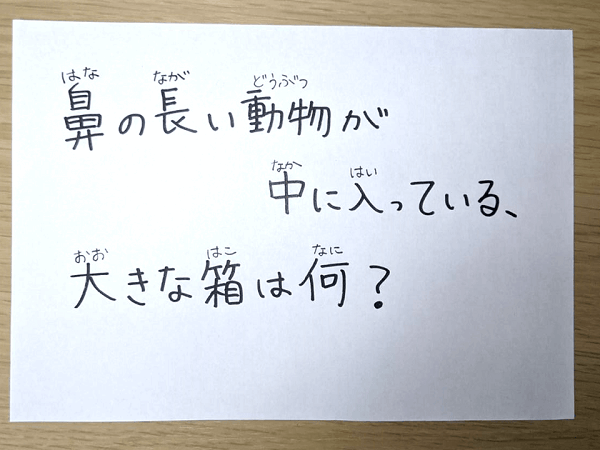 鼻の長い動物が
中に入っている、
大きな箱は何？
はな なが どうぶつ
なか はい
おお はこ なに